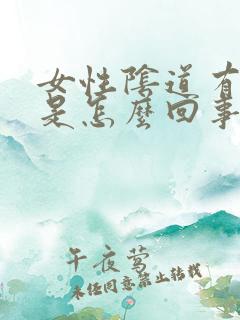 女性陰道有
是怎麼回事
午夜莺
未经同意禁止转载